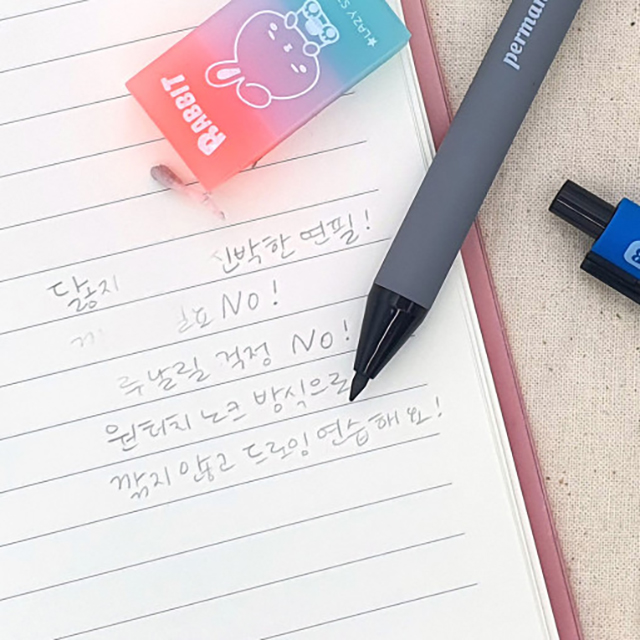 ★LAZY S
RABBIT
perman
신박한 연필!
닳지
No!
루날릴 걱정 No!
원터치 노크 방식으로
깎지 않고 드로잉 연습해요!